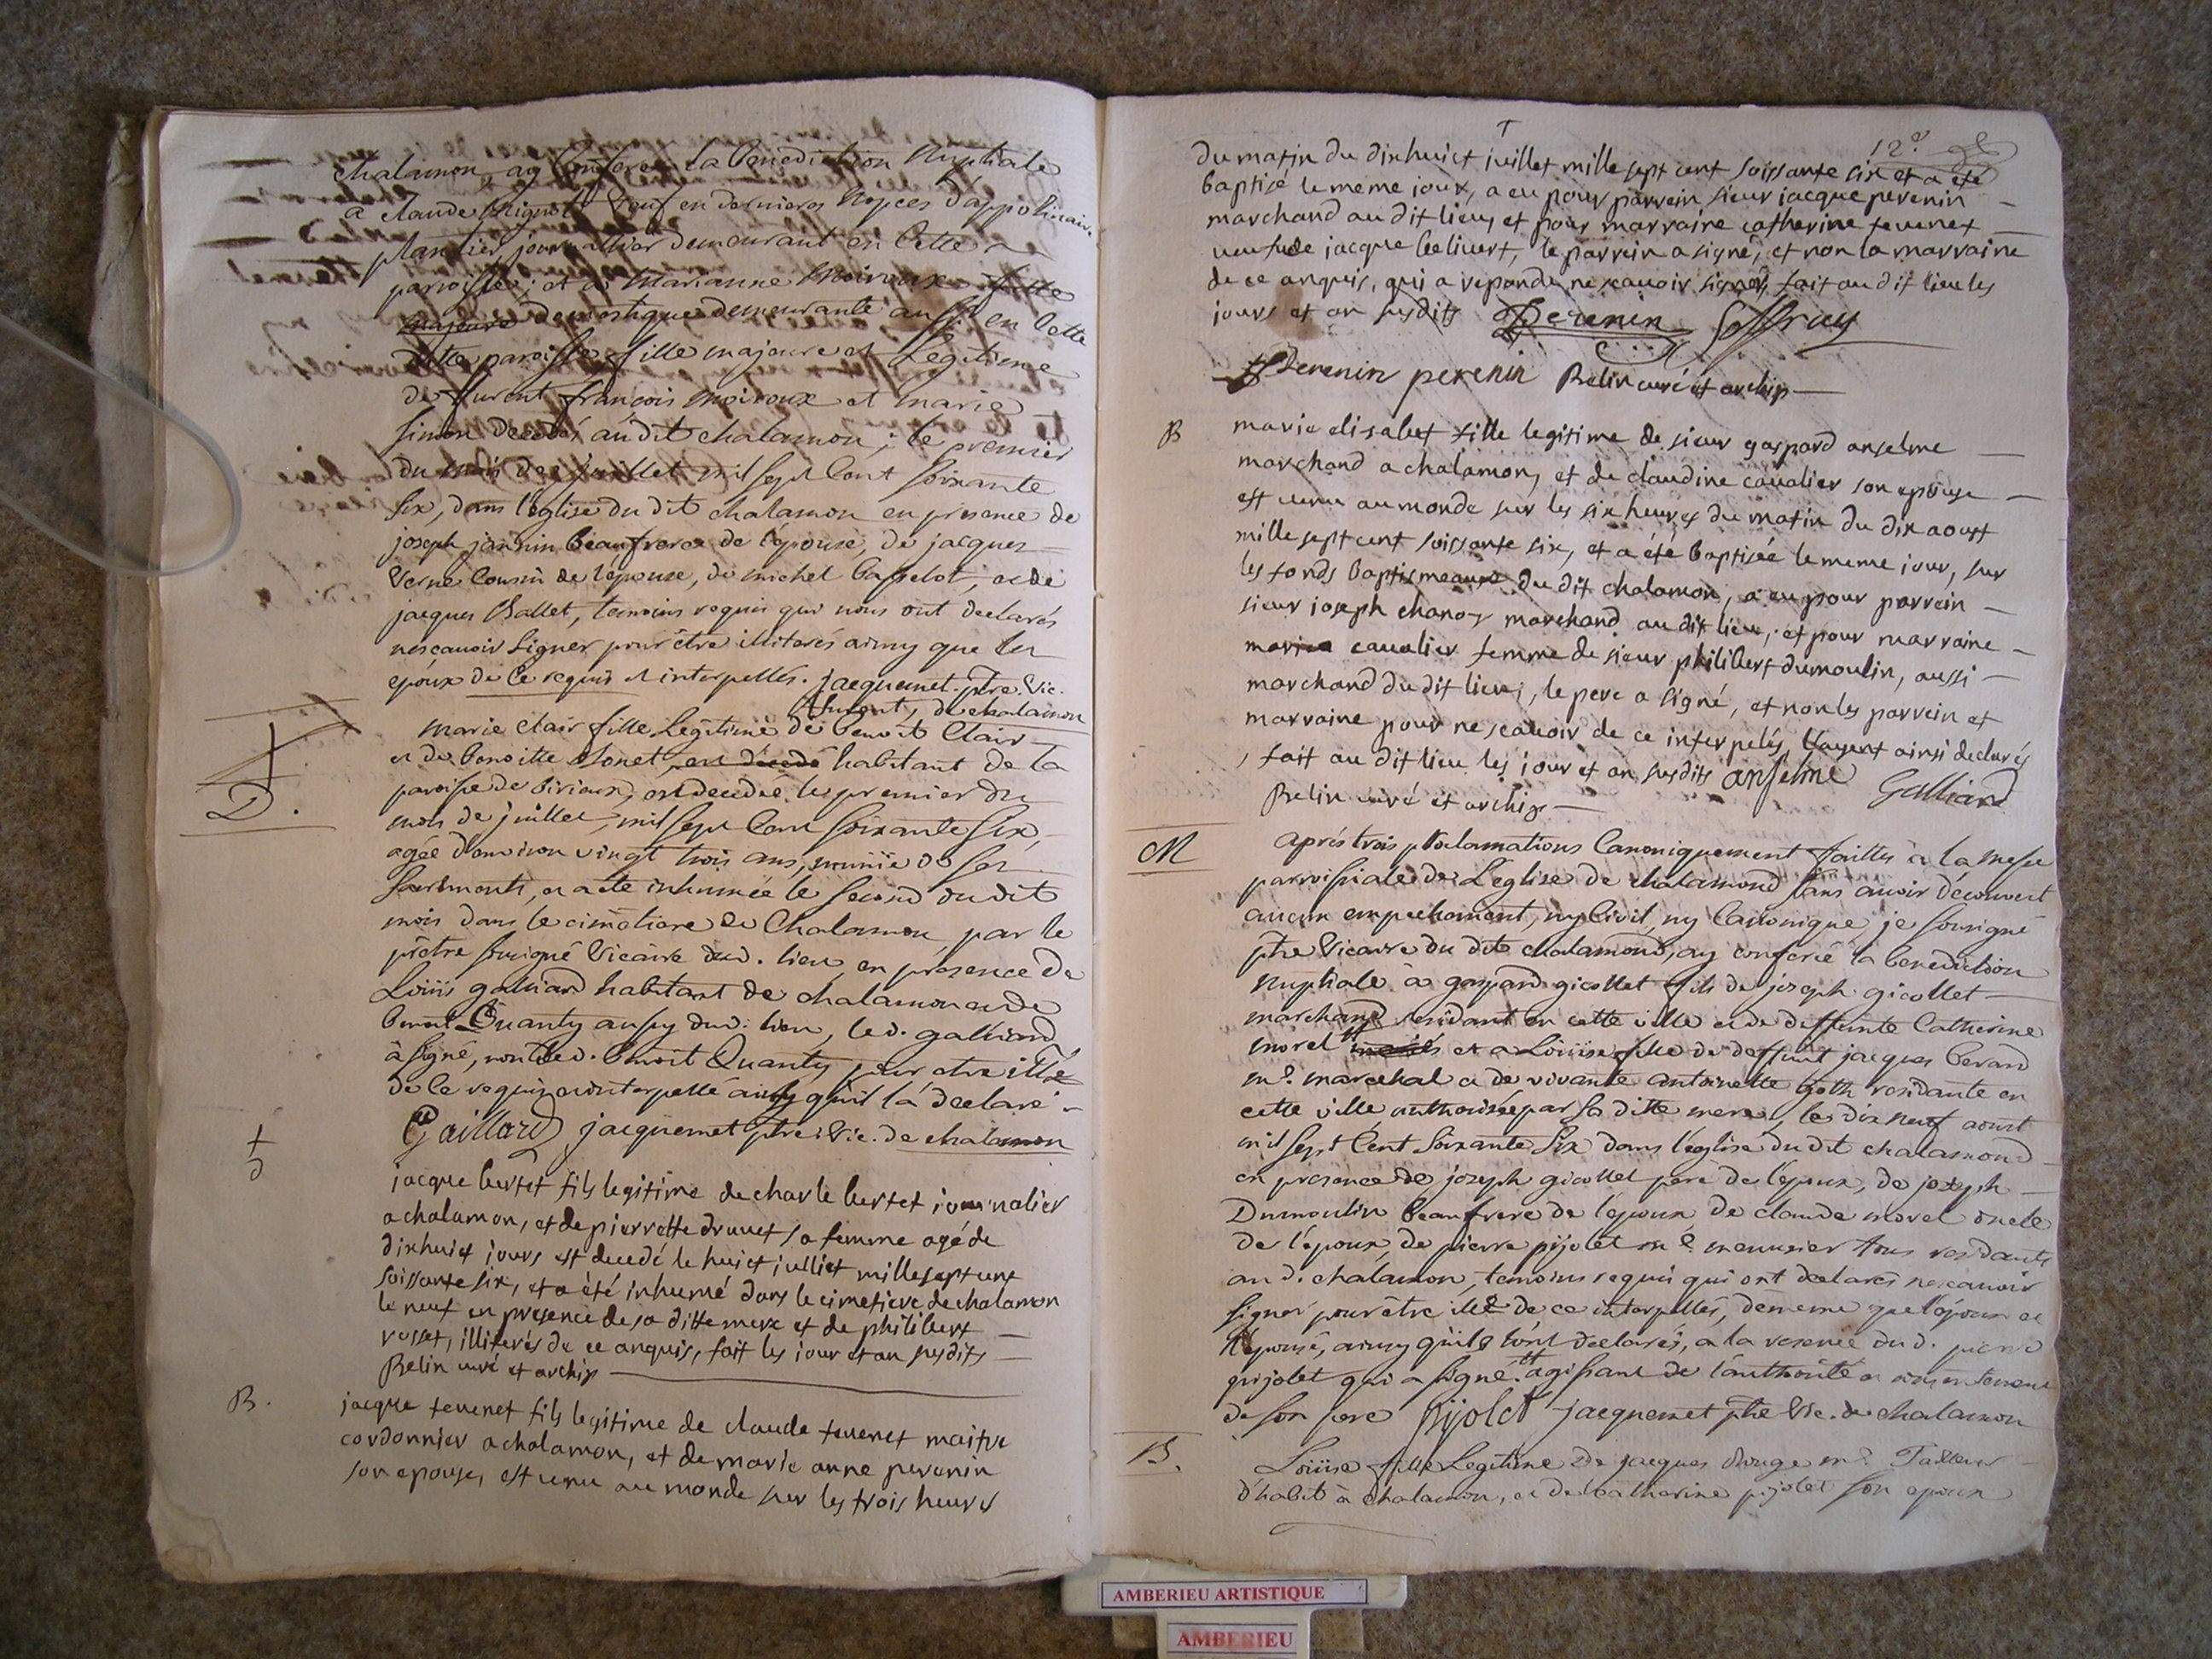 chalamon, ay conferé la benediction nuptiale
a claude veuf en dernieres nopces d'appolinaire
plantier, journallier demeurant en cette
parroisse; et a marianne moiroux fille
majeure domestique demeurante aussi en cette
ditte paroisse fille majeure et Legitime
de furent françois moiroux et marie
simon decedés au dit chalamon; le premier
du mois de juillet mil sept cent soixante
six, dans l'église du dit chalamon en presence de
joseph jannin beaufrere de l'epouse, de jacques
verne cousin de l'épouse, de michel basselot, et de
jacques ballet, temoins requis qui nous ont declarés
ne sçavoir signer pour être illiterés ainsy que les
époux de ce requis et interpellés. jacquemet ptre. vic.
de chalamon
marie clair fille Legitime de benoit clair
et de benoitte est décedé habitant de la
paroisse de birieux, est decedée le premier du
mois de juillet, mil sept cent soixante six,
agée d'environ vingt trois ans, munie de ses
sacrements, et a eté inhumée le second du dit
mois dans le cimetiere de chalamon, par le
prêtre sousigné vicaire dud. lieu, en presence de
Loüis galliard habitant de chalamon et de
benoit Quanty aussy dud. lieu, le d. galliard
à signé, non led. benoit Quanty pour etre illé
de ce requis et interpellé ainsy qu'il l'a declaré
Gaillard jacquemet ptre. vic. de chalamon
D.
†
D
jacque bertet fils legitime de charle bertet journalier
a chalamon, et de pierrette druuet sa femme agé de
dixhuict jours est decedé le huict julliet mille sept cent
soissante six, et a été inhumé dans le cimetiere de chalamon
le neuf en presence de sa ditte mere et de philibert
rosset, illiterés de ce anquis, fait les jour et an susdits
Belin curé et archip
B.
jacque tevenet fils legitime de claude tevenet maitre
cordonnier a chalamon, et de marie anne perenin
son epouse, est venu au monde sur les trois heures
12e
du matin du dixhuict juillet mille sept cent soissante six et a été
baptisé le meme jour, a eu pour parrein sieur jacque perenin
marchand au dit lieu, et pour marraine catherine tevenet
veufude jacque belivert, le parrein a signé, et non la marraine
de ce anquis, qui a repondu ne scavoir signer, fait au dit lieu les
jours et an susdits Perenin
Perenin perenin Belin curé et archip
B
marie elisabet fille legitime de sieur gaspard anselme
marchand a chalamon, et de claudine cavalier son epouse
est venu au monde sur les six heures du matin du dix aoust
mille sept cent soissante six, et a été baptisée le meme jour, sur
les fonds baptismeaux du dit chalamon, a eu pour parrein
sieur joseph chanoz marchand au dit lieu, et pour marraine
marie cavalier femme de sieur philibert dumoulin, aussi
marchand du dit lieu, le pere a signé, et non les parrein et
marraine pour ne scavoir de ce interpelés, l'ayent ainsi declarés
, fait au dit lieu les jour et an susdits anselme Galliard
Belin curé et archip
M
aprés trois proclamations canoniquement faittes à la messe
parroissiale de L'eglise de chalamond sans avoir découvert
aucun empechement, ny civil, ny canonique je sousigné
ptre vicaire du dit chalamond, ay conferé la benediction
nuptiale à gaspard gicollet fils de joseph gicollet
marchand residant en cette ville et de deffunte Catherine
morel et a Loüise fille de deffunt jacques berard
me. marechal et de vivante antoinette goth residante en
cette ville authorisée par sa ditte mere, le dix neuf aoust
mil sept cent soixante six dans l'église du dit chalamond
en présence de joseph gicollet pere de l'epoux, de joseph
Dumoulin beaufrere de l'epoux de claude morel oncle
de l'époux, de pierre pijolet me. menuisier tous residants
au d. chalamon, temoins requis qui ont declarés ne scavoir
signer pour être illé de ce interpellés, de meme que l'époux et
l'épouse, ainsy qu'ils l'ont declarés, a la reserve du d. pierre
pijolet qui a signé. agissant de l'authorité et
de son pere Pijolet jacquemet ptre vic. de chalamon
B.
Loüise fille Legitime de jacques me. Tailleur
d'habit à chalamon, et de catherine pijolet son epouse
AMBERIEU ARTISTIQUE
AMBERIEU